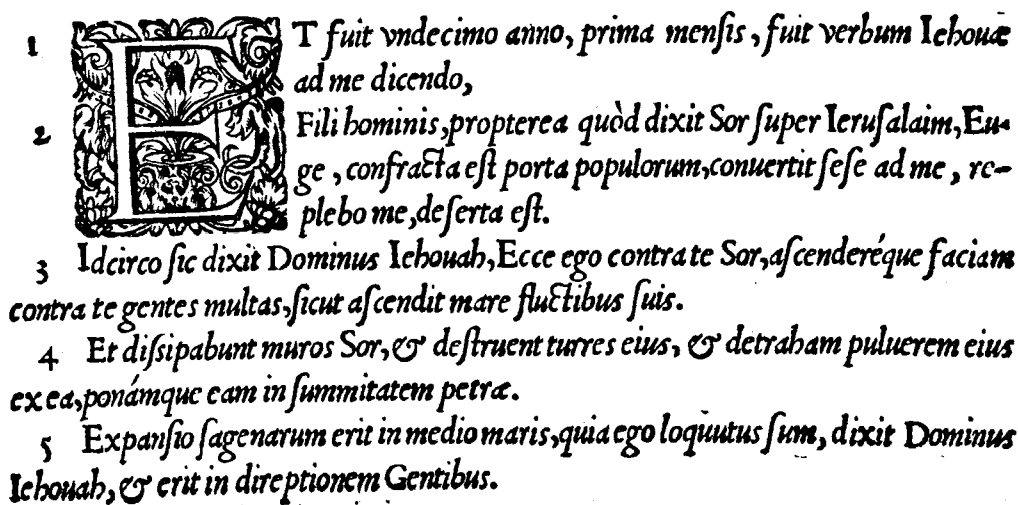 1 ET fuit vndecimo anno, prima menſis, fuit verbum Iehouæ
ad me dicendo,
2 Fili hominis, propterea quòd dixit Sor ſuper Ieruſalaim, Eu-
ge, confracta eſt porta populorum, conuertit ſeſe ad me, re-
plebo me, deſerta eſt.
3 Idcirco ſic dixit Dominus Iehouah, Ecce ego contra te Sor, aſcenderéque faciam
contra te gentes multas, ſicut aſcendit mare fluctibus ſuis.
4 Et diſsipabunt muros Sor, & deſtruent turres eius, & detraham puluerem eius
ex ea, ponámque eam in ſummitatem petræ.
5 Expanſio ſagenarum erit in medio maris, quia ego loquutus ſum, dixit Dominus
Iehouah, & erit in direptionem Gentibus.